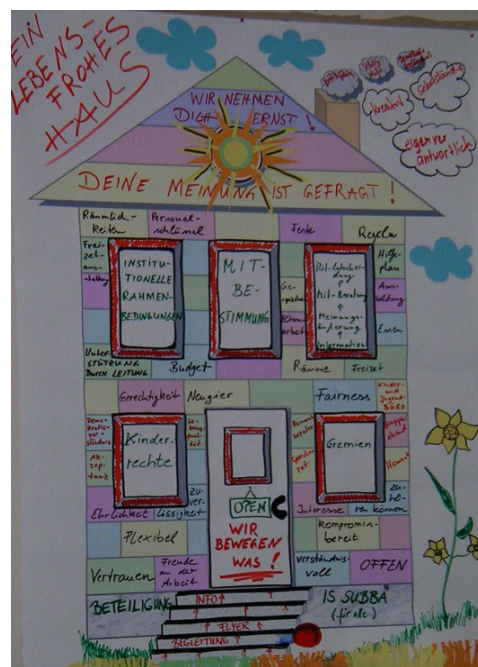 EIN
LEBENS-
FROHES
HAUS
kreativ
selbständig
eigenver
antwortlich
WIR NEHMEN
DICH ERNST!
DEINE MEINUNG IST GEFRAGT!
Räumlich-
keiten
Personal-
schlüssel
Feste
Regeln
Frei-
zeit-
aus-
INSTITU-
TIONELLE
RAHMEN-
BEDINGUNGEN
MIT-
BE-
STIMMUNG
Ge-
spräche
Eltern
arbeit
Mit-Entschei-
dung
Mit-Beratung
Meinungs-
äußerung
Information
Hilfe-
plan
Aus-
bildung
Essen
UNTER-
STÜTZUNG
DURCH LEITUNG
Budget
Räume
Freizeit
Gerechtigkeit
Neugier
Fairness
Kinder-
und
Jugend
BÜRO
Demo-
kratiever-
ständnis
Ak-
zep-
tanz
Kinder-
rechte
Gremien
Gruppe
abend
Heimrat
Ehrlichkeit
Zu-
ver-
lässigkeit
OPEN
Interesse
Zu-
hö-
ren können
Flexibel
WIR
BEWEGEN
WAS!
kompromiss-
bereit
Vertrauen
Freude
an der
Arbeit
verständnis-
voll
OFFEN
BETEILIGUNG
INFO
IS SUBBA
(für alle)
FLYER
BEGLEITUNG